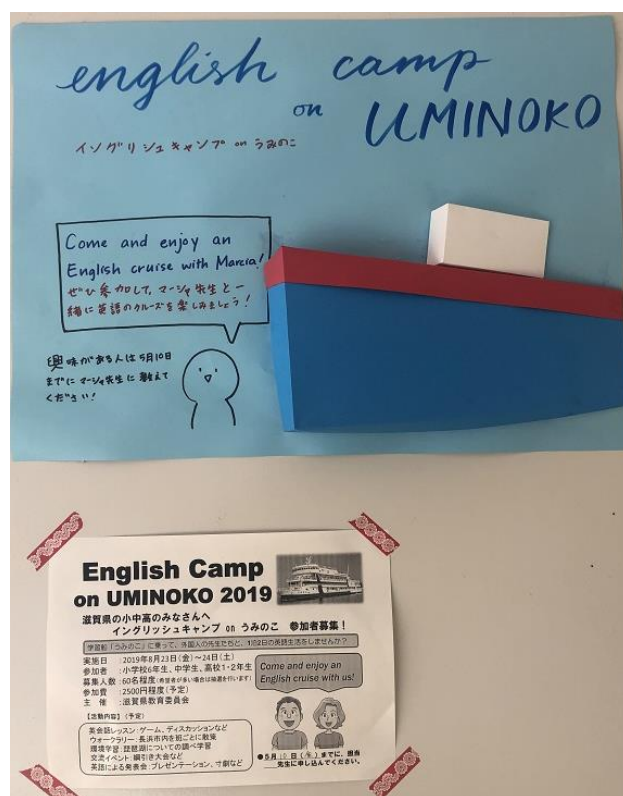 english camp
on UMINOKO
イングリッシュキャンプ on うみのこ
Come and enjoy an
English cruise with Marcia!
ぜひ参加して、マーシャ先生と一
緒に英語のクルーズを楽しみましょう!
興味がある人は5月10日
までにマーシャ先生に教えて
ください!
English Camp
on UMINOKO 2019
滋賀県の小中高のみなさんへ
イングリッシュキャンプ on うみのこ 参加者募集!
学習船「うみのこ」に乗って、外国人の先生たちと、1泊2日の英語生活をしませんか?
実施日 :2019年8月23日(金)~24日(土)
参加者 :小学校6年生、中学生、高校1・2年生
募集人数:60名程度(希望者が多い場合は抽選を行います)
参加費 :2500円程度(予定)
主 催 :滋賀県教育委員会
Come and enjoy an
English cruise with us!
【活動内容】(予定)
英会話レッスン:ゲーム、ディスカッションなど
ウォークラリー:長浜市内を班ごとに散策
環境学習:琵琶湖についての調べ学習
交流イベント:綱引き大会など
英語による発表会:プレゼンテーション、寸劇など
●5月10日(金)までに、担当
先生に申し込んでください。